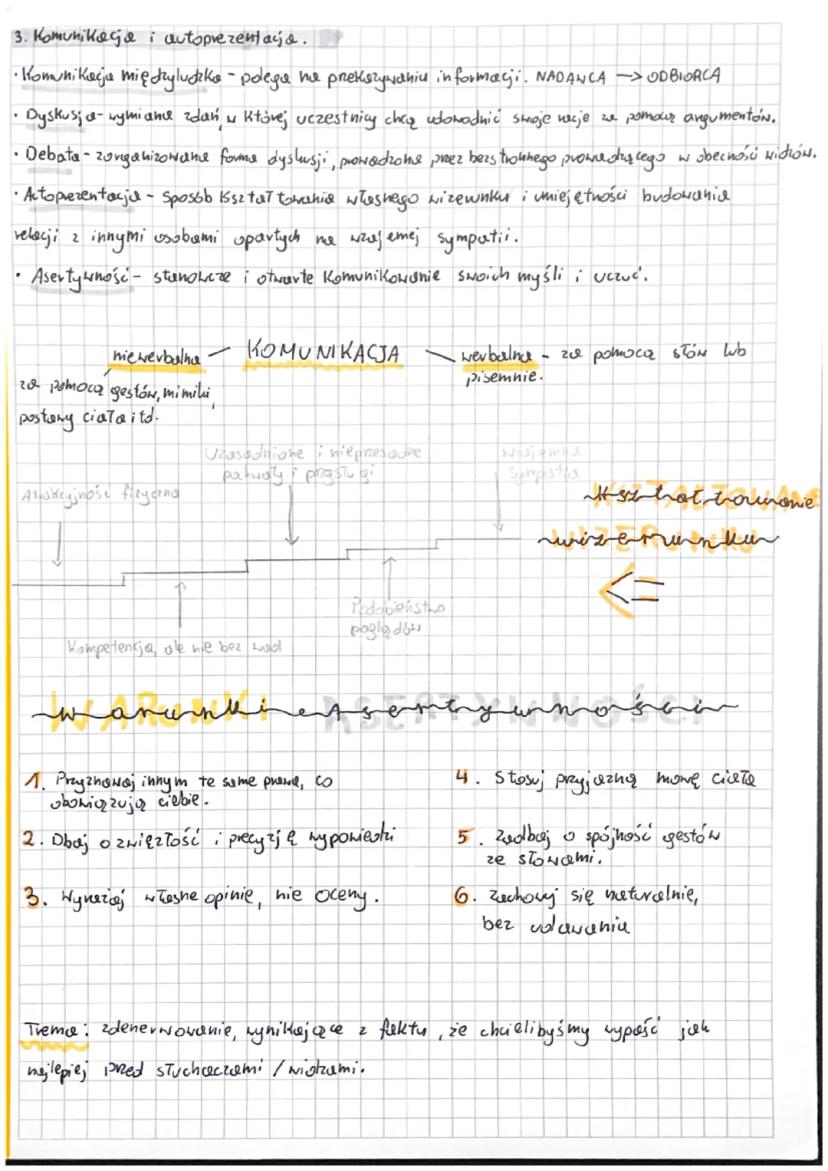 3. Komunikacja i autoprezentacja.
• Komunikacja międzyludzka - polega na przekazywaniu informacji. NADAWCA → ODBIORCA
• Dyskusja - wymiana zdań, w której uczestnicy chcą udowodnić swoje racje za pomocą argumentów.
• Debata - zorganizowana forma dyskusji, prowadzona przez bezstronnego prowadzącego w obecności widzów.
• Autoprezentacja - sposób kształtowania własnego wizerunku i umiejętności budowania
relacji z innymi osobami opartych na wzajemnej sympatii.
• Asertywność - stanowcze i otwarte komunikowanie swoich myśli i uczuć.
niewerbalna — KOMUNIKACJA — werbalna - za pomocą słów lub
pisemnie.
za pomocą gestów, mimiki,
postawy ciała itd.
Uzasadnione i nieprzesadne
pochwały i przysługi
Wzajemna
sympatia
Atrakcyjność fizyczna
Kształtowanie
wizerunku
Podobieństwo
poglądów
Kompetencja, ale nie bez wad
Warunki Asertywności
1. Przyznawaj innym te same prawa, co
obowiązują ciebie.
2. Dbaj o zwięzłość i precyzję wypowiedzi
3. Wyrażaj własne opinie, nie oceny.
4. Stosuj przyjazną mowę ciała
5. Zadbaj o spójność gestów
ze słowami.
6. Zachowuj się naturalnie,
bez udawania
Trema: zdenerwowanie, wynikające z faktu, że chcielibyśmy wypaść jak
najlepiej przed słuchaczami / widzami.